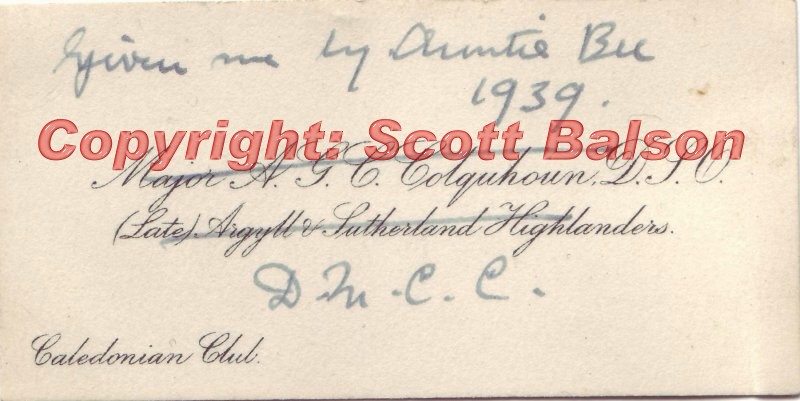 Given me by Auntie Bee
1939.
Copyright: Scott Balson
Major A. G. C. Colquhoun, D.S.O.
(Late) Argyll & Sutherland Highlanders.
D.M.C.C.
Caledonian Club.